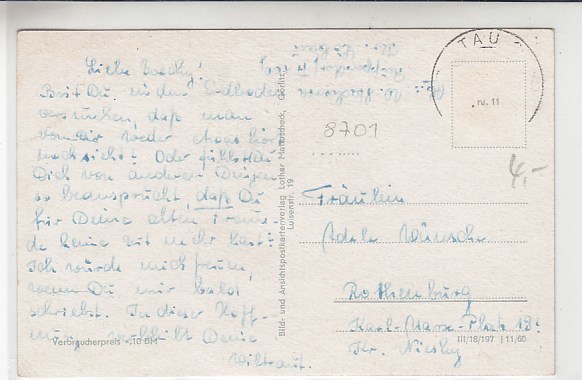 Bist Du in den Erdboden
versunken, daß man
von Dir weder etwas hört
noch sieht? Oder fühlst Du
Dich von anderen Dingen
so beansprucht, daß Du
für Deine alten Freun-
de keine Zeit mehr hast?
Ich würde mich freuen,
wenn Du mir bald
schreibst. In dieser Hoff-
nung verbleibt Deine
Wiltraut.
Verbraucherpreis -,10 DM
Bild- und Ansichtspostkartenverlag Lothar Mattuscheck, Görlitz,
Luisenstr. 19
TAU
8701
4,-
Fräulein
Adele Wünsche
Rothenburg
Karl-Marx-Platz
Kr. Niesky
III/18/197 | 11/60